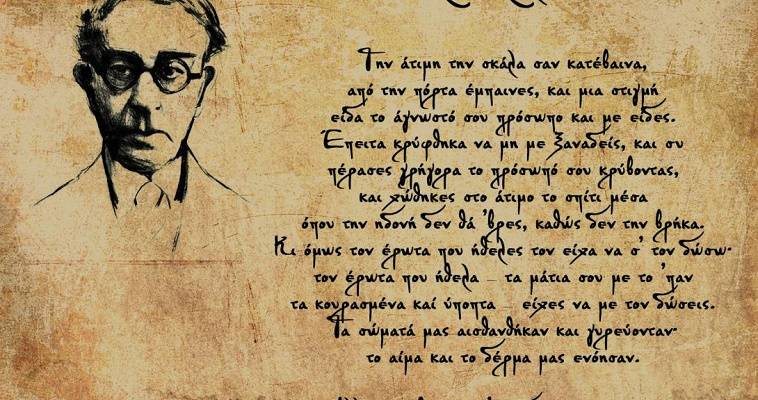 Την άτιμη την σκάλα σαν κατέβαινα,
από την πόρτα έμπαινες, και μια στιγμή
είδα το άγνωστό σου πρόσωπο και με είδες.
Έπειτα κρύφθηκα να μη με ξαναδείς, και συ
πέρασες γρήγορα το πρόσωπό σου κρύβοντας,
και χώθηκες στο άτιμο το σπίτι μέσα
όπου την ηδονή δεν θά 'βρες, καθώς δεν την βρήκα.
Κι όμως τον έρωτα που ήθελες τον είχα να σ' τον δώσω·
τον έρωτα που ήθελα – τα μάτια σου με το 'παν
τα κουρασμένα καί ύποπτα – είχες να με τον δώσεις.
Τα σώματά μας αισθανθήκαν και γυρεύονταν·
το αίμα και το δέρμα μας ενόησαν.